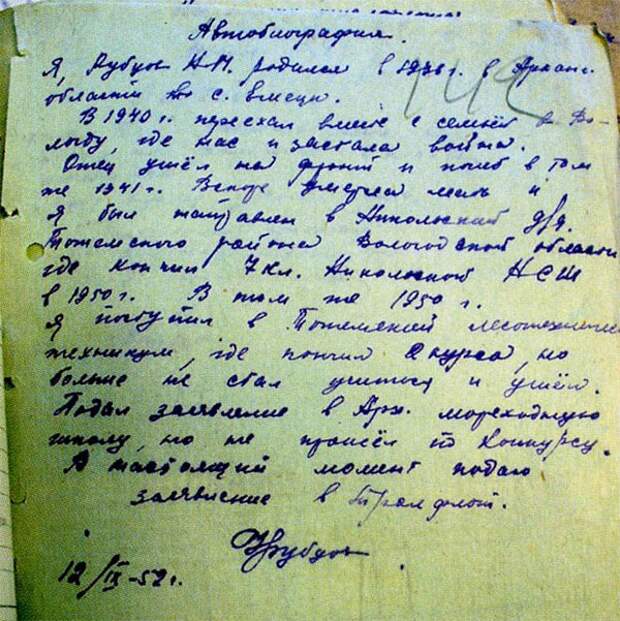 Автобиография.
Я, Рубцов Н.М. родился в 1936 г. в Арханг.
области в с. Емецк.
В 1940 г. переехал вместе с семьёй в Во-
логду, где нас и застала война.
Отец ушёл на фронт и погиб в том
же 1941 г. Вскоре умерла мать и
я был направлен в Никольский д/д.
Тотемского района Вологодской области
где кончил 7 кл. Никольской НСШ
в 1950 г. В том же 1950 г.
я поступил в Тотемский лесотехнический
техникум, где кончил 2 курса, но
больше не стал учиться и ушёл.
Подал заявление в Арх. мореходную
школу, но не прошёл по конкурсу.
В настоящий момент подаю
заявление в Тралфлот.
НРубцов
12/IX-52 г.